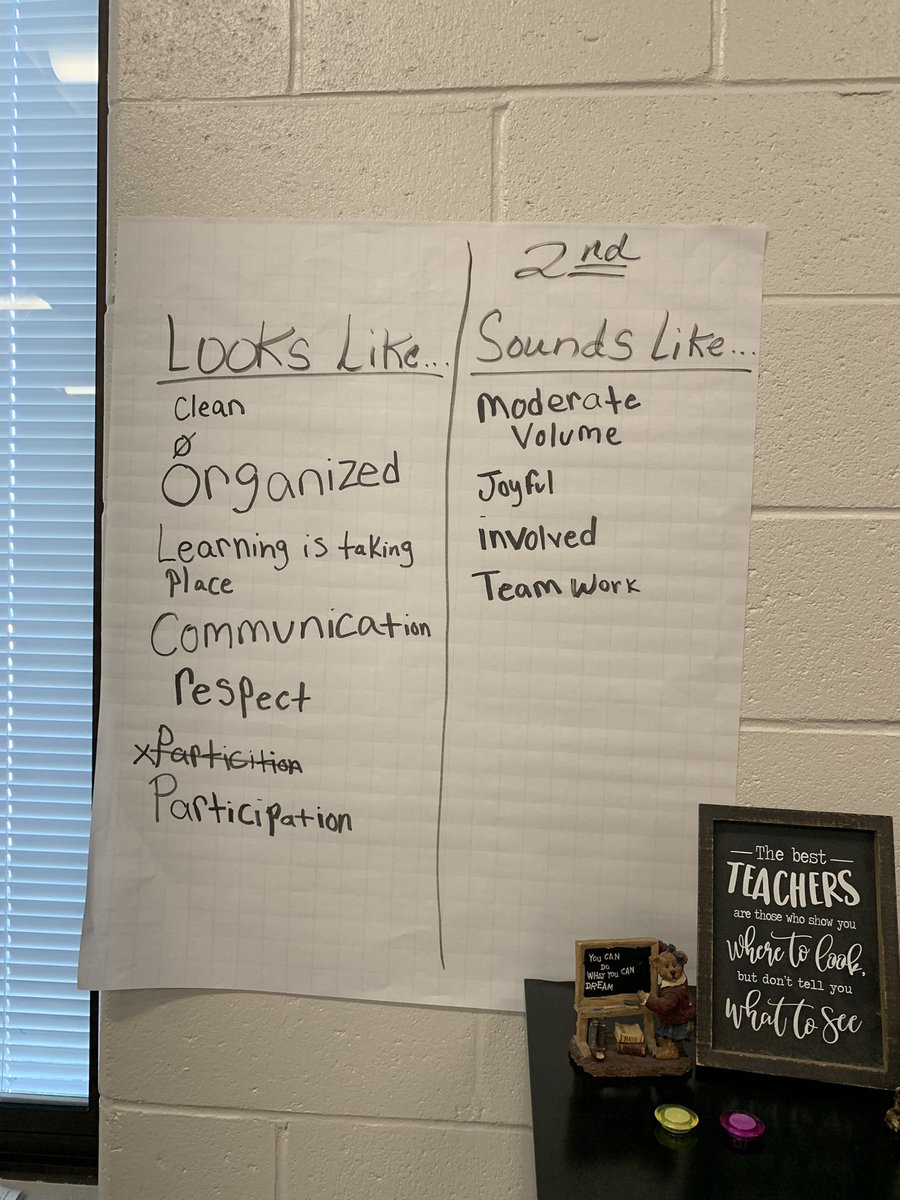 2nd
Looks Like...
Clean
Ø
Organized
Learning is taking
Place
Communication
respect
x Particition
Participation
Sounds Like...
Moderate
Volume
Joyful
involved
Team Work
The best
TEACHERS
are those who show you
where to look,
but don't tell you
what to see
YOU CAN
DO
WHAT YOU CAN
DREAM
MATH